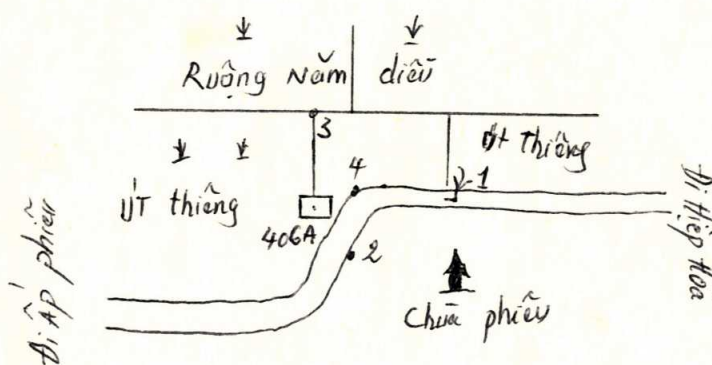 Ruộng Năm diễu
3
Út Thiềng
ÚT thiềng
4
1
406A
2
Chùa phiễu
Đi Ấp phiễu
Đi Hiệp Hoa